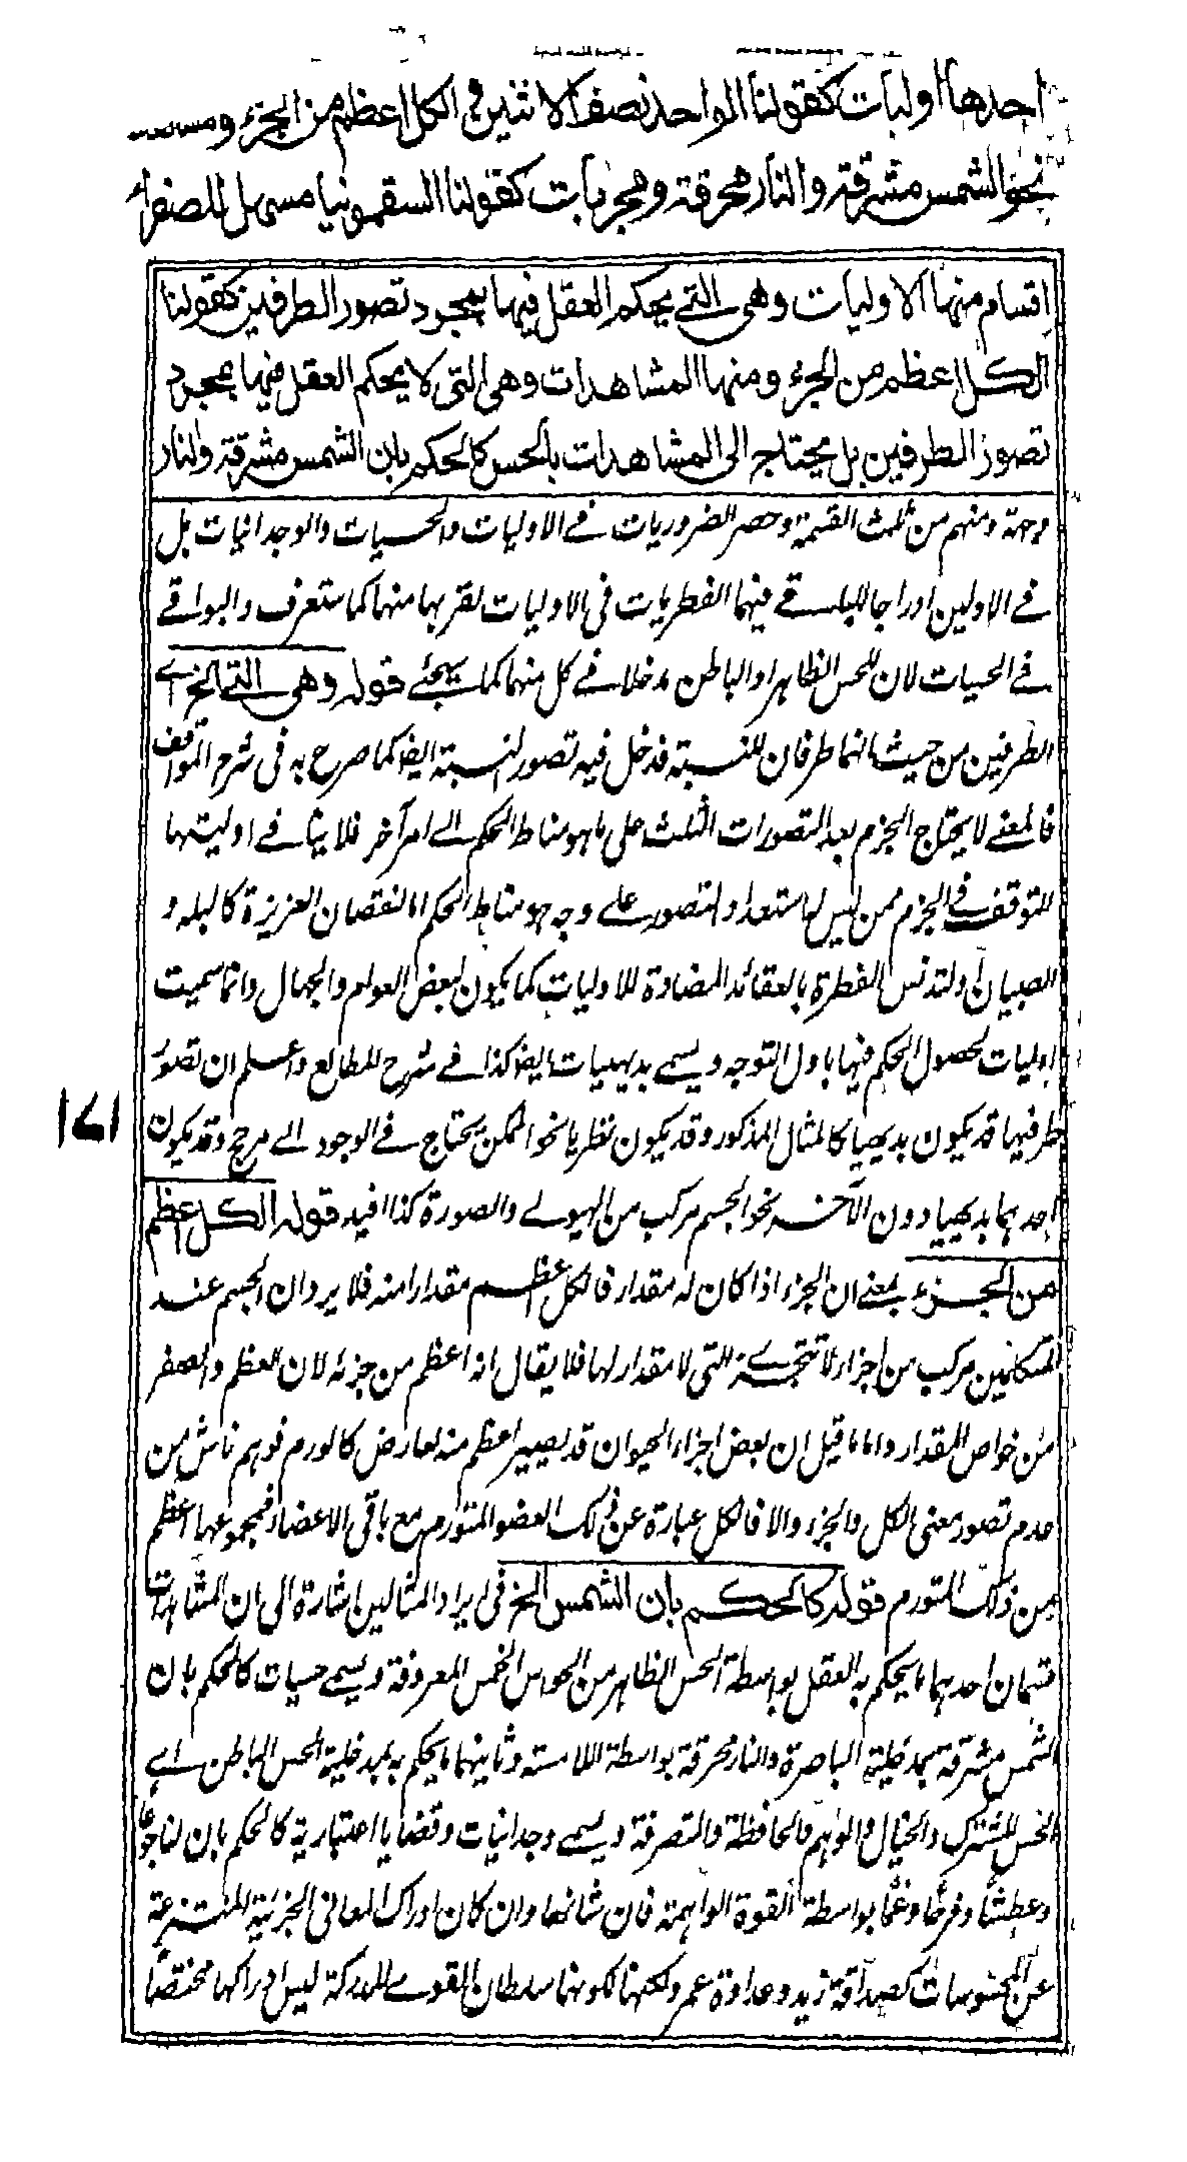 احدها اوليات كقولنا الواحد نصف الاثنين في الكل اعظم من الجزء و
نحو الشمس مشرقة والنار محرقة ومجربات كقولنا السقمونيا مسهل للصفراء
اقسام منها الاوليات وهى التے يحكم العقل فيها بمجرد تصور الطرفين كقولنا
الكل اعظم من الجزء ومنها المشاهدات وهى التى لا يحكم العقل فيها بمجرد
تصور الطرفين بل يحتاج الى المشاهدات بالحس كالحكم بان الشمس مشرقة والنار
وجهة ومنهم من ثلث القسمة وحصر الضروريات فے الاوليات والحسيات والوجدانيات بل
فے الاولين ادراجا للبلسقے فيهما الفطريات فى الاوليات لقربها منها كما ستعرف والبواقے
فے الحسيات لان للحس الظاهر او الباطن مدخلا فے كل منها كما سيجئے قوله وهى التے الخ اے
الطرفين من حيث انهما طرفان للنسبة فدخل فيه تصور النسبة ايضا كما صرح به فى شرح المواقف
فالمعنے لا يحتاج الجزم بعد التصورات الثلث على ما هو مناط الحكم الے امر آخر فلا ينافے اوليتها
للتوقف فے الجزم ممن ليس له استعداد التصور علے وجه هو مناط الحكم اما لنقصان الغريزة كالبله و
الصبيان او لتدنس الفطرة بالعقائد المضادة للاوليات كما يكون لبعض العوام والجهال وانما سميت
اوليات لحصول الحكم فيها باول التوجه ويسمے بديهيات ايضا كذا فے شرح المطالع واعلم ان تصور
طرفيها قد يكون بديهيا كالمثال المذكور وقد يكون نظريا نحو الممكن يحتاج فے الوجود الے مرجح وقد يكون
١٧١
احدهما بديهيا دون الآخر نحو الجسم مركب من الهيولے والصورة كذا افيد قوله الكل اعظم
من الجزء بمعنے ان الجزء اذا كان له مقدار فالكل اعظم مقدارا منه فلا يرد ان الجسم عند
المتكلمين مركب من اجزاء لا تتجزے التى لا مقدار لها فلا يقال انه اعظم من جزئه لان العظم والصغر
من خواص المقدار واما ما قيل ان بعض اجزاء الحيوان قد يصير اعظم منه لعارض كالورم فوهم ناش من
عدم تصور معنى الكل والجزء والا فالكل عبارة عن ذلك العضو المتورم مع باقى الاعضاء فمجموعها اعظم
من ذلك المتورم قوله كالحكم بان الشمس الخ فى ايراد المثالين اشارة الى ان المشاهدات
قسمان احدهما ما يحكم به العقل بواسطة الحس الظاهر من الحواس الخمس المعروفة ويسمے حسيات كالحكم بان
الشمس مشرقة بمدخلية الباصرة والنار محرقة بواسطة اللامسة وثانيهما ما يحكم به بمدخلية الحس الباطن اے
الحس المشترك والخيال والوهم والحافظة والمتصرفة ويسمے وجدانيات وقضايا اعتبارية كالحكم بان لنا جوعا
وعطشا وفرحا وغما بواسطة القوة الواهمة فان شانها وان كان ادراك المعانى الجزئية المنتزعة
عن المحسوسات كصداقة زيد وعداوة عمرو لكنها لكونها سلطان القوے المدركة ليس ادراكها مختصا